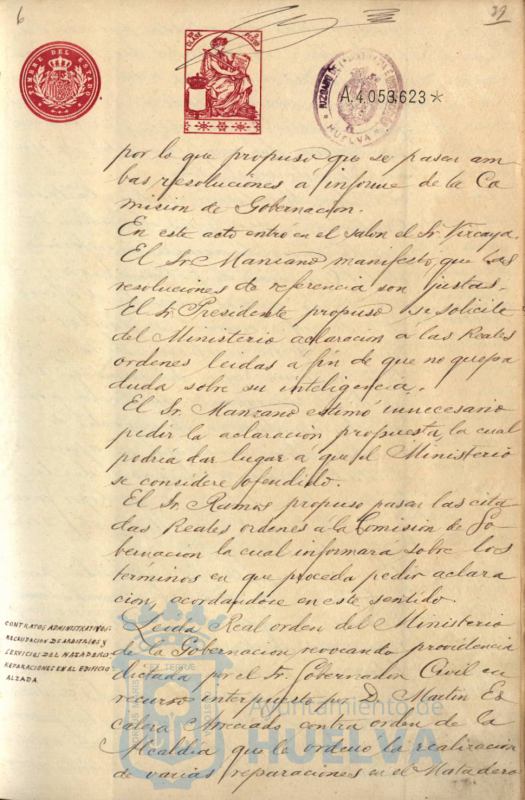 6
39
TIMBRE DEL ESTADO
HUELVA
A.4.053.623*
por lo que propuso que se pasen am
bas resoluciones á informe de la Co
mision de Gobernacion.
En este acto entró en el salon el Sr. Vizcaya.
El Sr. Manzano manifestó, que las
resoluciones de referencia son justas.
El Sr. Presidente propuso se solicite
del Ministerio aclaracion á las Reales
ordenes leidas á fin de que no quepa
duda sobre su inteligencia.
El Sr. Manzano estimó innecesario
pedir la aclaración propuesta, la cual
podria dar lugar á que el Ministerio
se considere ofendido.
El Sr. Ramos propuso pasar las cita
das Reales ordenes a la Comision de Go
bernacion la cual informara sobre los
términos en que proceda pedir aclara
cion, acordandose en este sentido.
CONTRATOS ADMINISTRATIVOS
RECAUDACION DE ARBITRIOS Y
SERVICIOS DEL MATADERO,
REPARACIONES EN EL EDIFICIO
ALZADA.
Leida Real orden del Ministerio
de la Gobernacion revocando providencia
dictada por el Sr. Gobernador Civil en
recurso interpuesto por D. Martin Es
calera contra orden de la
Alcaldia que le ordenó la realizacion
de varias reparaciones en el Matadero
Ayuntamiento de
HUELVA